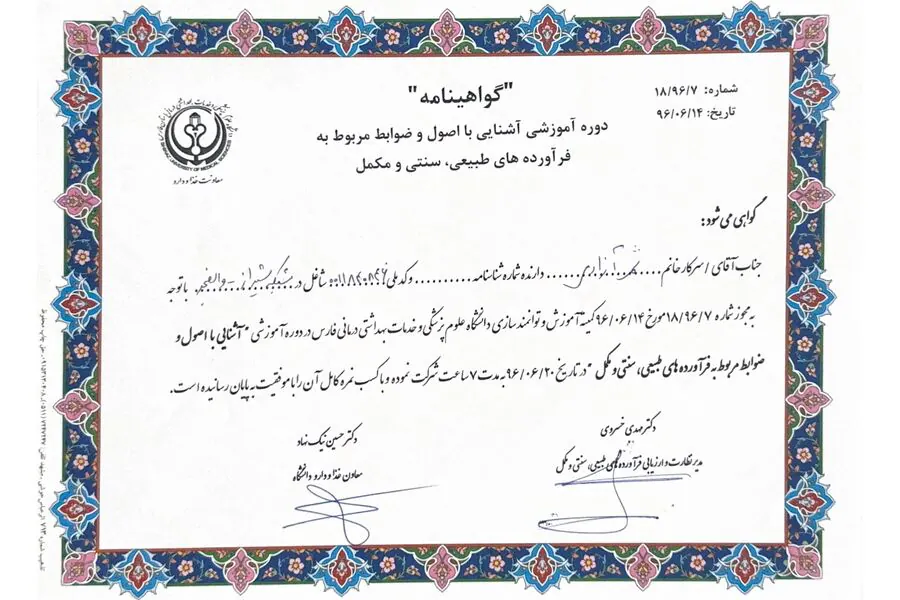 "گواهینامه"
شماره: ۱۸/۹۶/۷
تاریخ: ۹۶/۰۶/۱۴
دوره آموزشی آشنایی با اصول و ضوابط مربوط به
فرآورده های طبیعی، سنتی و مکمل
UNIVERSITY OF MEDICAL SCIENCES
معاونت غذا و دارو
گواهی می شود:
جناب آقای / سرکار خانم .... ...... دارنده شماره شناسنامه .......... و کد ملی شاغل در با توجه
به مجوز شماره ۱۸/۹۶/۷ مورخ ۹۶/۰۶/۱۴ کمیته آموزش و توانمند سازی دانشگاه علوم پزشکی و خدمات بهداشتی درمانی فارس در دوره آموزشی "آشنایی با اصول و
ضوابط مربوط به فرآورده های طبیعی، سنتی و مکمل" در تاریخ ۹۶/۰۶/۲۰ به مدت ۷ ساعت شرکت نموده و با کسب نمره کامل آن را با موفقیت به پایان رسانیده است.
دکتر مهدی خسروی
مدیر نظارت و ارزیابی فرآورده های طبیعی، سنتی و مکمل
دکتر حسین نیک نهاد
معاون غذا و دارو دانشگاه